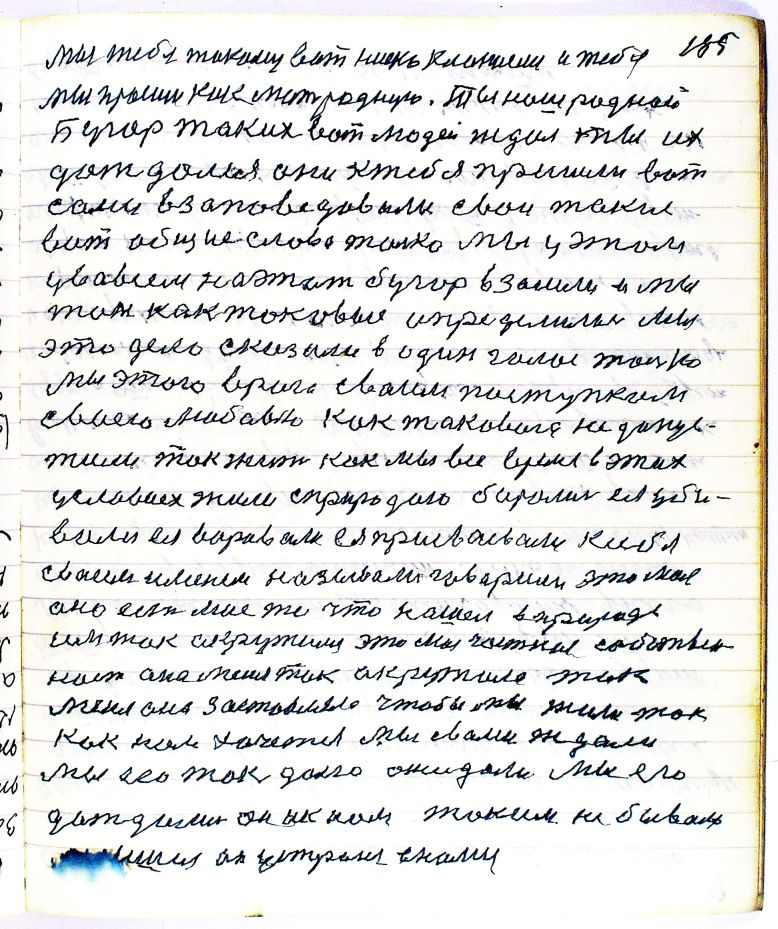 185
мы тебя такому вот низко кланимси и тебя
мы просим как мать родную. Ты наш родной
Бугор таких вот людей ждал и ты их
дождалься они к тебя пришли вот
сами взаповедовали свои такие
вот общие слова только мы у этом
увавсем на этот бугор взошли и мы
так как таковые определились мы
это дело сказали в один голос только
мы этого врага своим поступкам
своею любовью как таковога не допус-
тили так жить как мы все время в этих
условиех жили с природаю боролись ея уби-
вали ея варовали ея присваевали к себя
своем именем называли говарили это мая
оно есть мае то что нашел в природе
им так окружили это моя частная собствен
ность она меня так окружала так
меня она заставляла чтобы мы жили так
как нам хочется мы сваи ждали
мы его так долго ожидали мы его
дождались он к нам таким не бывалы
он утром с нами